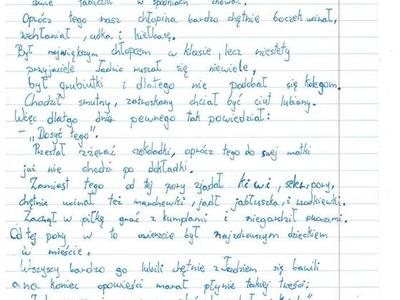 duże tabliczki w spodniach chował.
Oprócz tego nasz chłopina bardzo chętnie boczek wcinał,
wchłaniał, udka i kiełbasę.
Był największym chłopcem w klasie, lecz niestety
przyjaciele Jadzio ruszał się niewiele,
był grubiutki i dlatego nie podobał się kolegom.
Chodził smutny, zatroskany chciał być ciut lubiany.
Więc dlatego dnia pewnego tak powiedział:
- „Dosyć tego".
Przestał zżerać czekoladki, oprócz tego do swej matki
już nie chodzi po dokładki.
Zamiast tego od tej pory zjadał kiwi, seler, pory,
chętnie wcinał też marchewki, jadł jabłuszka, i rzodkiewki.
Zaczął w piłkę grać z kumplami i niegardził owocami.
Od tej pory w to uwierzcie był najzdrowszym dzieckiem
w mieście.
Wszyscy bardzo go lubili chętnie z Jadziem się bawili
a na koniec opowieści morał płynie takiej treści: